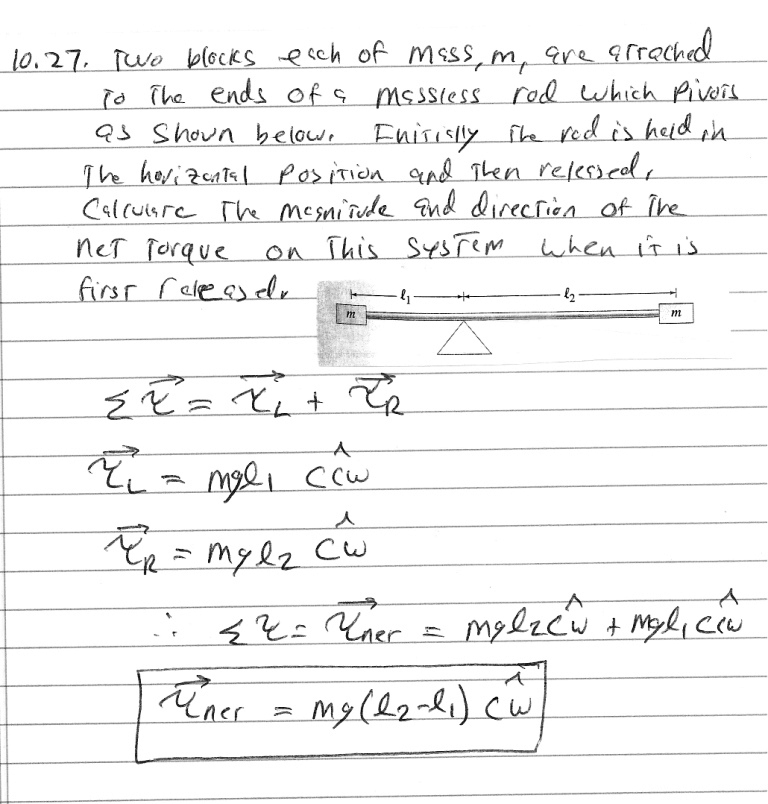 10.27. Two blocks each of mass, m, are attached
to the ends of a massless rod which pivots
as shown below. Initially the rod is held in
the horizontal position and then released.
Calculate the magnitude and direction of the
net torque on this system when it is
first released.
ℓ₁ ℓ₂
m m
Σ τ⃗ = τ⃗_L + τ⃗_R
τ⃗_L = mgℓ₁ ccŵ
τ⃗_R = mgℓ₂ cŵ
∴ Στ = τ⃗_net = mgℓ₂ cŵ + mgℓ₁ ccŵ
τ⃗_net = mg(ℓ₂-ℓ₁) cŵ